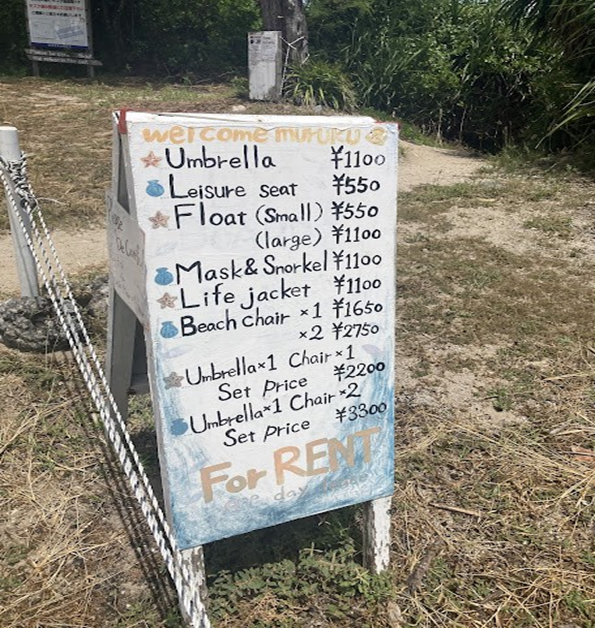 welcome MUFUKU
Umbrella ¥1100
Leisure seat ¥550
Float (small) ¥550
(large) ¥1100
Mask & Snorkel ¥1100
Life jacket ¥1100
Beach chair ×1 ¥1650
×2 ¥2750
Umbrella×1 Chair×1
Set price ¥2200
Umbrella×1 Chair×2
Set price ¥3300
For RENT
one day